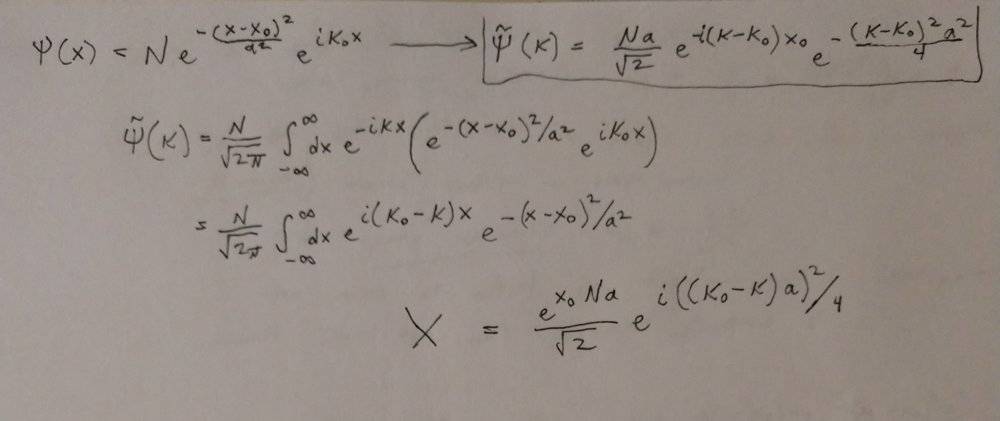 ψ(x) = N e^{-(x-x₀)²/a²} e^{iK₀x} ⟶ ψ̃(K) = \frac{Na}{√2} e^{-i(K-K₀)x₀} e^{-\frac{(K-K₀)²a²}{4}}
ψ̃(K) = \frac{N}{√2π} ∫_{-∞}^{∞} dx e^{-iKx} (e^{-(x-x₀)²/a²} e^{iK₀x})
= \frac{N}{√2π} ∫_{-∞}^{∞} dx e^{i(K₀-K)x} e^{-(x-x₀)²/a²}
X = \frac{e^{x₀} Na}{√2} e^{i((K₀-K)a)²/4}